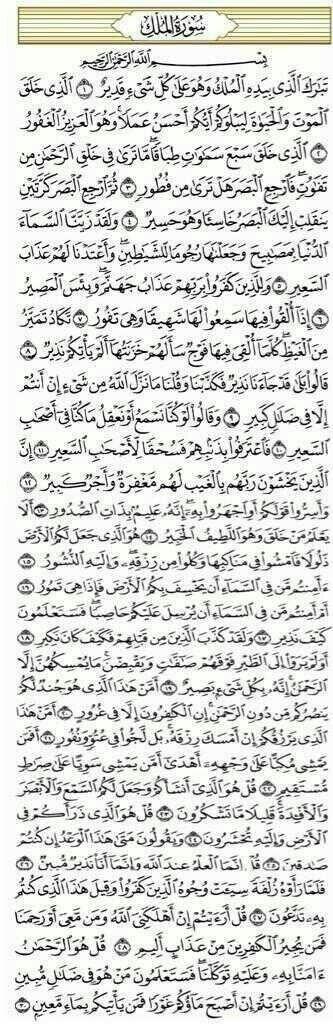 سُورَةُ المُلْكِ
بِسْمِ ٱللَّهِ ٱلرَّحْمَٰنِ ٱلرَّحِيمِ
تَبَٰرَكَ ٱلَّذِى بِيَدِهِ ٱلْمُلْكُ وَهُوَ عَلَىٰ كُلِّ شَىْءٍ قَدِيرٌ ١ ٱلَّذِى خَلَقَ
ٱلْمَوْتَ وَٱلْحَيَوٰةَ لِيَبْلُوَكُمْ أَيُّكُمْ أَحْسَنُ عَمَلًا وَهُوَ ٱلْعَزِيزُ ٱلْغَفُورُ
٢ ٱلَّذِى خَلَقَ سَبْعَ سَمَٰوَٰتٍ طِبَاقًا مَّا تَرَىٰ فِى خَلْقِ ٱلرَّحْمَٰنِ مِن
تَفَٰوُتٍ فَٱرْجِعِ ٱلْبَصَرَ هَلْ تَرَىٰ مِن فُطُورٍ ٣ ثُمَّ ٱرْجِعِ ٱلْبَصَرَ كَرَّتَيْنِ
يَنقَلِبْ إِلَيْكَ ٱلْبَصَرُ خَاسِئًا وَهُوَ حَسِيرٌ ٤ وَلَقَدْ زَيَّنَّا ٱلسَّمَآءَ
ٱلدُّنْيَا بِمَصَٰبِيحَ وَجَعَلْنَٰهَا رُجُومًا لِّلشَّيَٰطِينِ وَأَعْتَدْنَا لَهُمْ عَذَابَ
ٱلسَّعِيرِ ٥ وَلِلَّذِينَ كَفَرُوا۟ بِرَبِّهِمْ عَذَابُ جَهَنَّمَ وَبِئْسَ ٱلْمَصِيرُ
٦ إِذَآ أُلْقُوا۟ فِيهَا سَمِعُوا۟ لَهَا شَهِيقًا وَهِىَ تَفُورُ ٧ تَكَادُ تَمَيَّزُ
مِنَ ٱلْغَيْظِ كُلَّمَآ أُلْقِىَ فِيهَا فَوْجٌ سَأَلَهُمْ خَزَنَتُهَآ أَلَمْ يَأْتِكُمْ نَذِيرٌ ٨
قَالُوا۟ بَلَىٰ قَدْ جَآءَنَا نَذِيرٌ فَكَذَّبْنَا وَقُلْنَا مَا نَزَّلَ ٱللَّهُ مِن شَىْءٍ إِنْ أَنتُمْ
إِلَّا فِى ضَلَٰلٍ كَبِيرٍ ٩ وَقَالُوا۟ لَوْ كُنَّا نَسْمَعُ أَوْ نَعْقِلُ مَا كُنَّا فِىٓ أَصْحَٰبِ
ٱلسَّعِيرِ ١٠ فَٱعْتَرَفُوا۟ بِذَنۢبِهِمْ فَسُحْقًا لِّأَصْحَٰبِ ٱلسَّعِيرِ ١١ إِنَّ
ٱلَّذِينَ يَخْشَوْنَ رَبَّهُم بِٱلْغَيْبِ لَهُم مَّغْفِرَةٌ وَأَجْرٌ كَبِيرٌ ١٢
وَأَسِرُّوا۟ قَوْلَكُمْ أَوِ ٱجْهَرُوا۟ بِهِۦٓ إِنَّهُۥ عَلِيمٌۢ بِذَاتِ ٱلصُّدُورِ ١٣ أَلَا
يَعْلَمُ مَنْ خَلَقَ وَهُوَ ٱللَّطِيفُ ٱلْخَبِيرُ ١٤ هُوَ ٱلَّذِى جَعَلَ لَكُمُ ٱلْأَرْضَ
ذَلُولًا فَٱمْشُوا۟ فِى مَنَاكِبِهَا وَكُلُوا۟ مِن رِّزْقِهِۦ وَإِلَيْهِ ٱلنُّشُورُ ١٥
ءَأَمِنتُم مَّن فِى ٱلسَّمَآءِ أَن يَخْسِفَ بِكُمُ ٱلْأَرْضَ فَإِذَا هِىَ تَمُورُ ١٦
أَمْ أَمِنتُم مَّن فِى ٱلسَّمَآءِ أَن يُرْسِلَ عَلَيْكُمْ حَاصِبًا فَسَتَعْلَمُونَ
كَيْفَ نَذِيرِ ١٧ وَلَقَدْ كَذَّبَ ٱلَّذِينَ مِن قَبْلِهِمْ فَكَيْفَ كَانَ نَكِيرِ ١٨
أَوَلَمْ يَرَوْا۟ إِلَى ٱلطَّيْرِ فَوْقَهُمْ صَٰٓفَّٰتٍ وَيَقْبِضْنَ مَا يُمْسِكُهُنَّ إِلَّا
ٱلرَّحْمَٰنُ إِنَّهُۥ بِكُلِّ شَىْءٍۭ بَصِيرٌ ١٩ أَمَّنْ هَٰذَا ٱلَّذِى هُوَ جُندٌ لَّكُمْ
يَنصُرُكُم مِّن دُونِ ٱلرَّحْمَٰنِ إِنِ ٱلْكَٰفِرُونَ إِلَّا فِى غُرُورٍ ٢٠ أَمَّنْ هَٰذَا
ٱلَّذِى يَرْزُقُكُمْ إِنْ أَمْسَكَ رِزْقَهُۥ بَل لَّجُّوا۟ فِى عُتُوٍّ وَنُفُورٍ ٢١ أَفَمَن
يَمْشِى مُكِبًّا عَلَىٰ وَجْهِهِۦٓ أَهْدَىٰٓ أَمَّن يَمْشِى سَوِيًّا عَلَىٰ صِرَٰطٍ
مُّسْتَقِيمٍ ٢٢ قُلْ هُوَ ٱلَّذِىٓ أَنشَأَكُمْ وَجَعَلَ لَكُمُ ٱلسَّمْعَ وَٱلْأَبْصَٰرَ
وَٱلْأَفْـِٔدَةَ قَلِيلًا مَّا تَشْكُرُونَ ٢٣ قُلْ هُوَ ٱلَّذِى ذَرَأَكُمْ فِى
ٱلْأَرْضِ وَإِلَيْهِ تُحْشَرُونَ ٢٤ وَيَقُولُونَ مَتَىٰ هَٰذَا ٱلْوَعْدُ إِن كُنتُمْ
صَٰدِقِينَ ٢٥ قُلْ إِنَّمَا ٱلْعِلْمُ عِندَ ٱللَّهِ وَإِنَّمَآ أَنَا۠ نَذِيرٌ مُّبِينٌ ٢٦
فَلَمَّا رَأَوْهُ زُلْفَةً سِيٓـَٔتْ وُجُوهُ ٱلَّذِينَ كَفَرُوا۟ وَقِيلَ هَٰذَا ٱلَّذِى كُنتُم
بِهِۦ تَدَّعُونَ ٢٧ قُلْ أَرَءَيْتُمْ إِنْ أَهْلَكَنِىَ ٱللَّهُ وَمَن مَّعِىَ أَوْ رَحِمَنَا
فَمَن يُجِيرُ ٱلْكَٰفِرِينَ مِنْ عَذَابٍ أَلِيمٍ ٢٨ قُلْ هُوَ ٱلرَّحْمَٰنُ
ءَامَنَّا بِهِۦ وَعَلَيْهِ تَوَكَّلْنَا فَسَتَعْلَمُونَ مَنْ هُوَ فِى ضَلَٰلٍ مُّبِينٍ
٢٩ قُلْ أَرَءَيْتُمْ إِنْ أَصْبَحَ مَآؤُكُمْ غَوْرًا فَمَن يَأْتِيكُم بِمَآءٍ مَّعِينٍۭ ٣٠